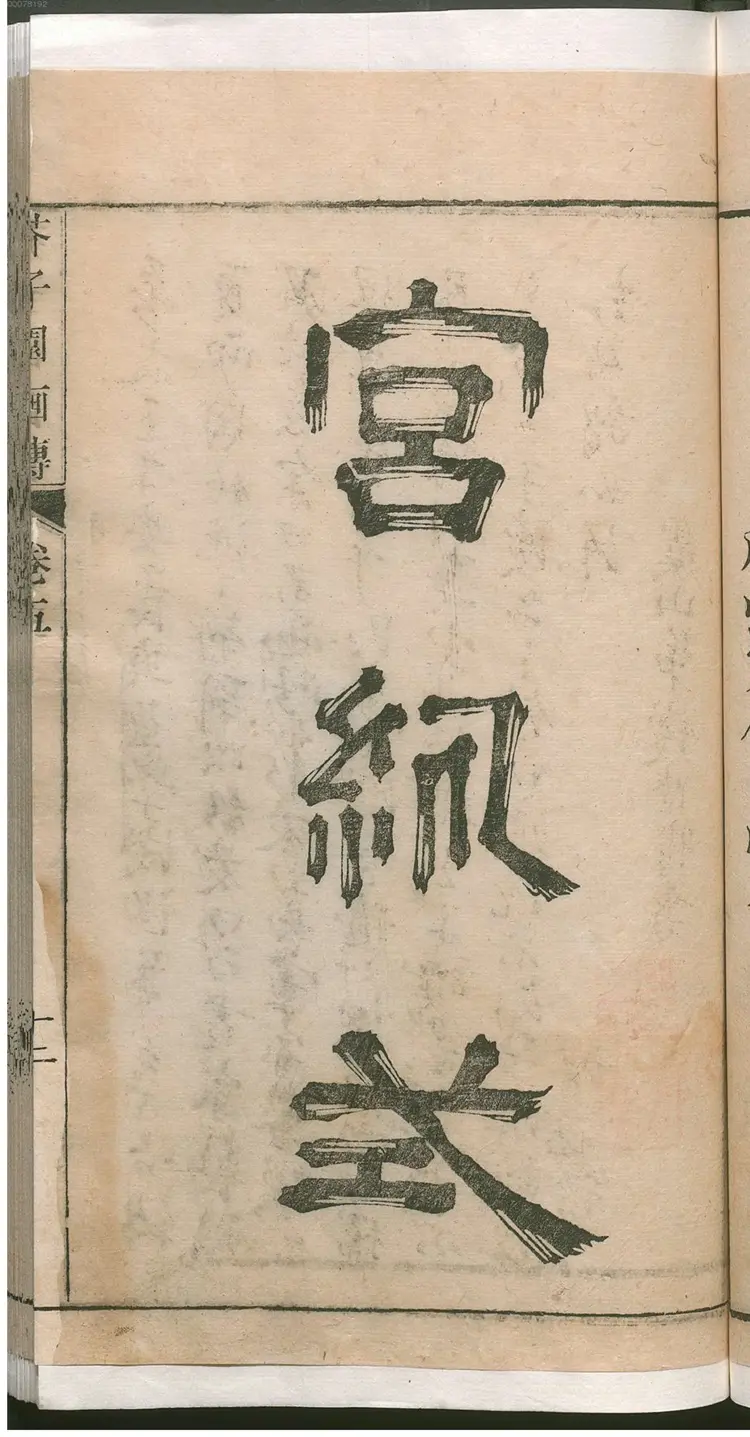 宮紈式
芥子園畫傳
卷五
00078192